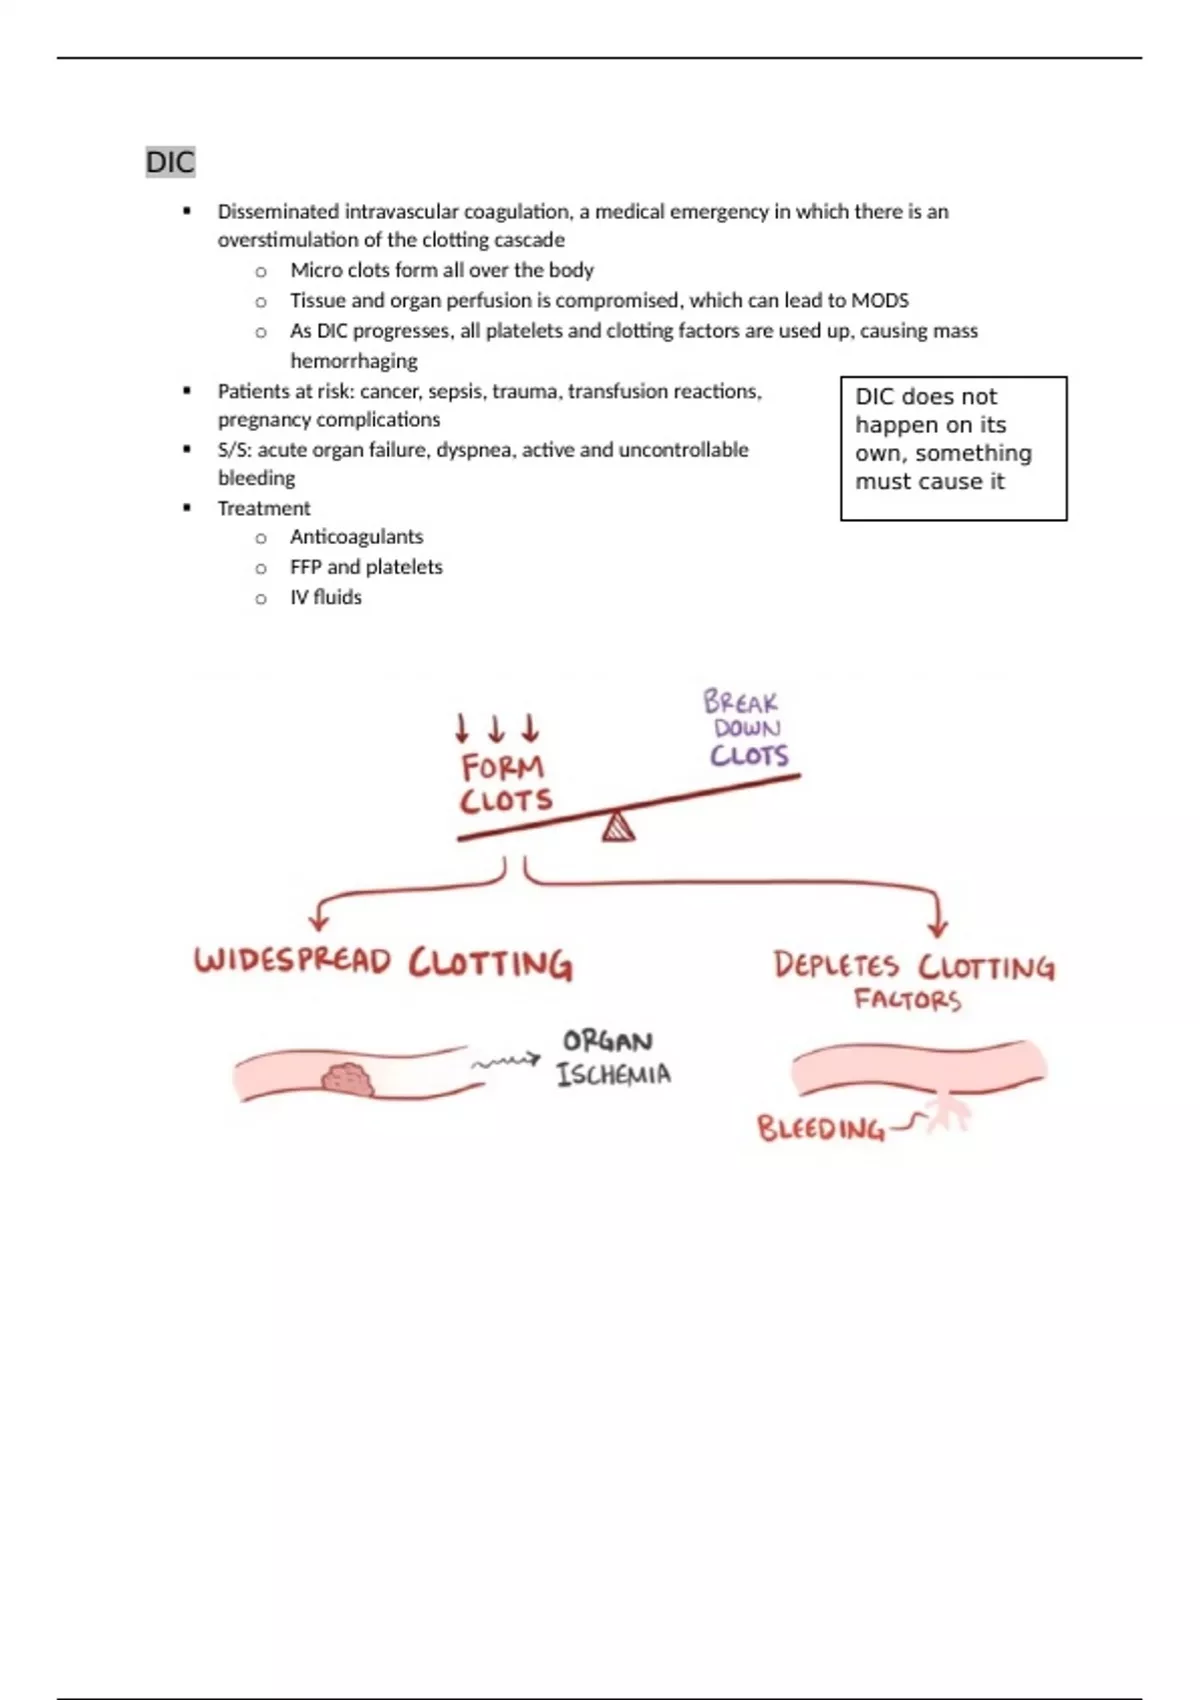 DIC
▪ Disseminated intravascular coagulation, a medical emergency in which there is an
overstimulation of the clotting cascade
o Micro clots form all over the body
o Tissue and organ perfusion is compromised, which can lead to MODS
o As DIC progresses, all platelets and clotting factors are used up, causing mass
hemorrhaging
▪ Patients at risk: cancer, sepsis, trauma, transfusion reactions,
pregnancy complications
▪ S/S: acute organ failure, dyspnea, active and uncontrollable
bleeding
▪ Treatment
o Anticoagulants
o FFP and platelets
o IV fluids
DIC does not
happen on its
own, something
must cause it
FORM
CLOTS
BREAK
DOWN
CLOTS
WIDESPREAD CLOTTING
DEPLETES CLOTTING
FACTORS
ORGAN
ISCHEMIA
BLEEDING